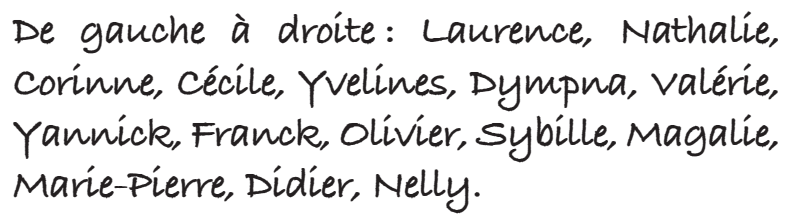 De gauche à droite : Laurence, Nathalie,
Corinne, Cécile, Yvelines, Dympna, Valérie,
Yannick, Franck, Olivier, Sybille, Magalie,
Marie-Pierre, Didier, Nelly.